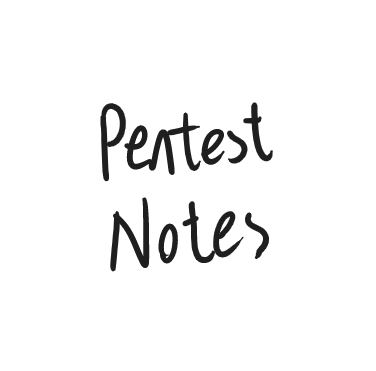 Pentest
Notes